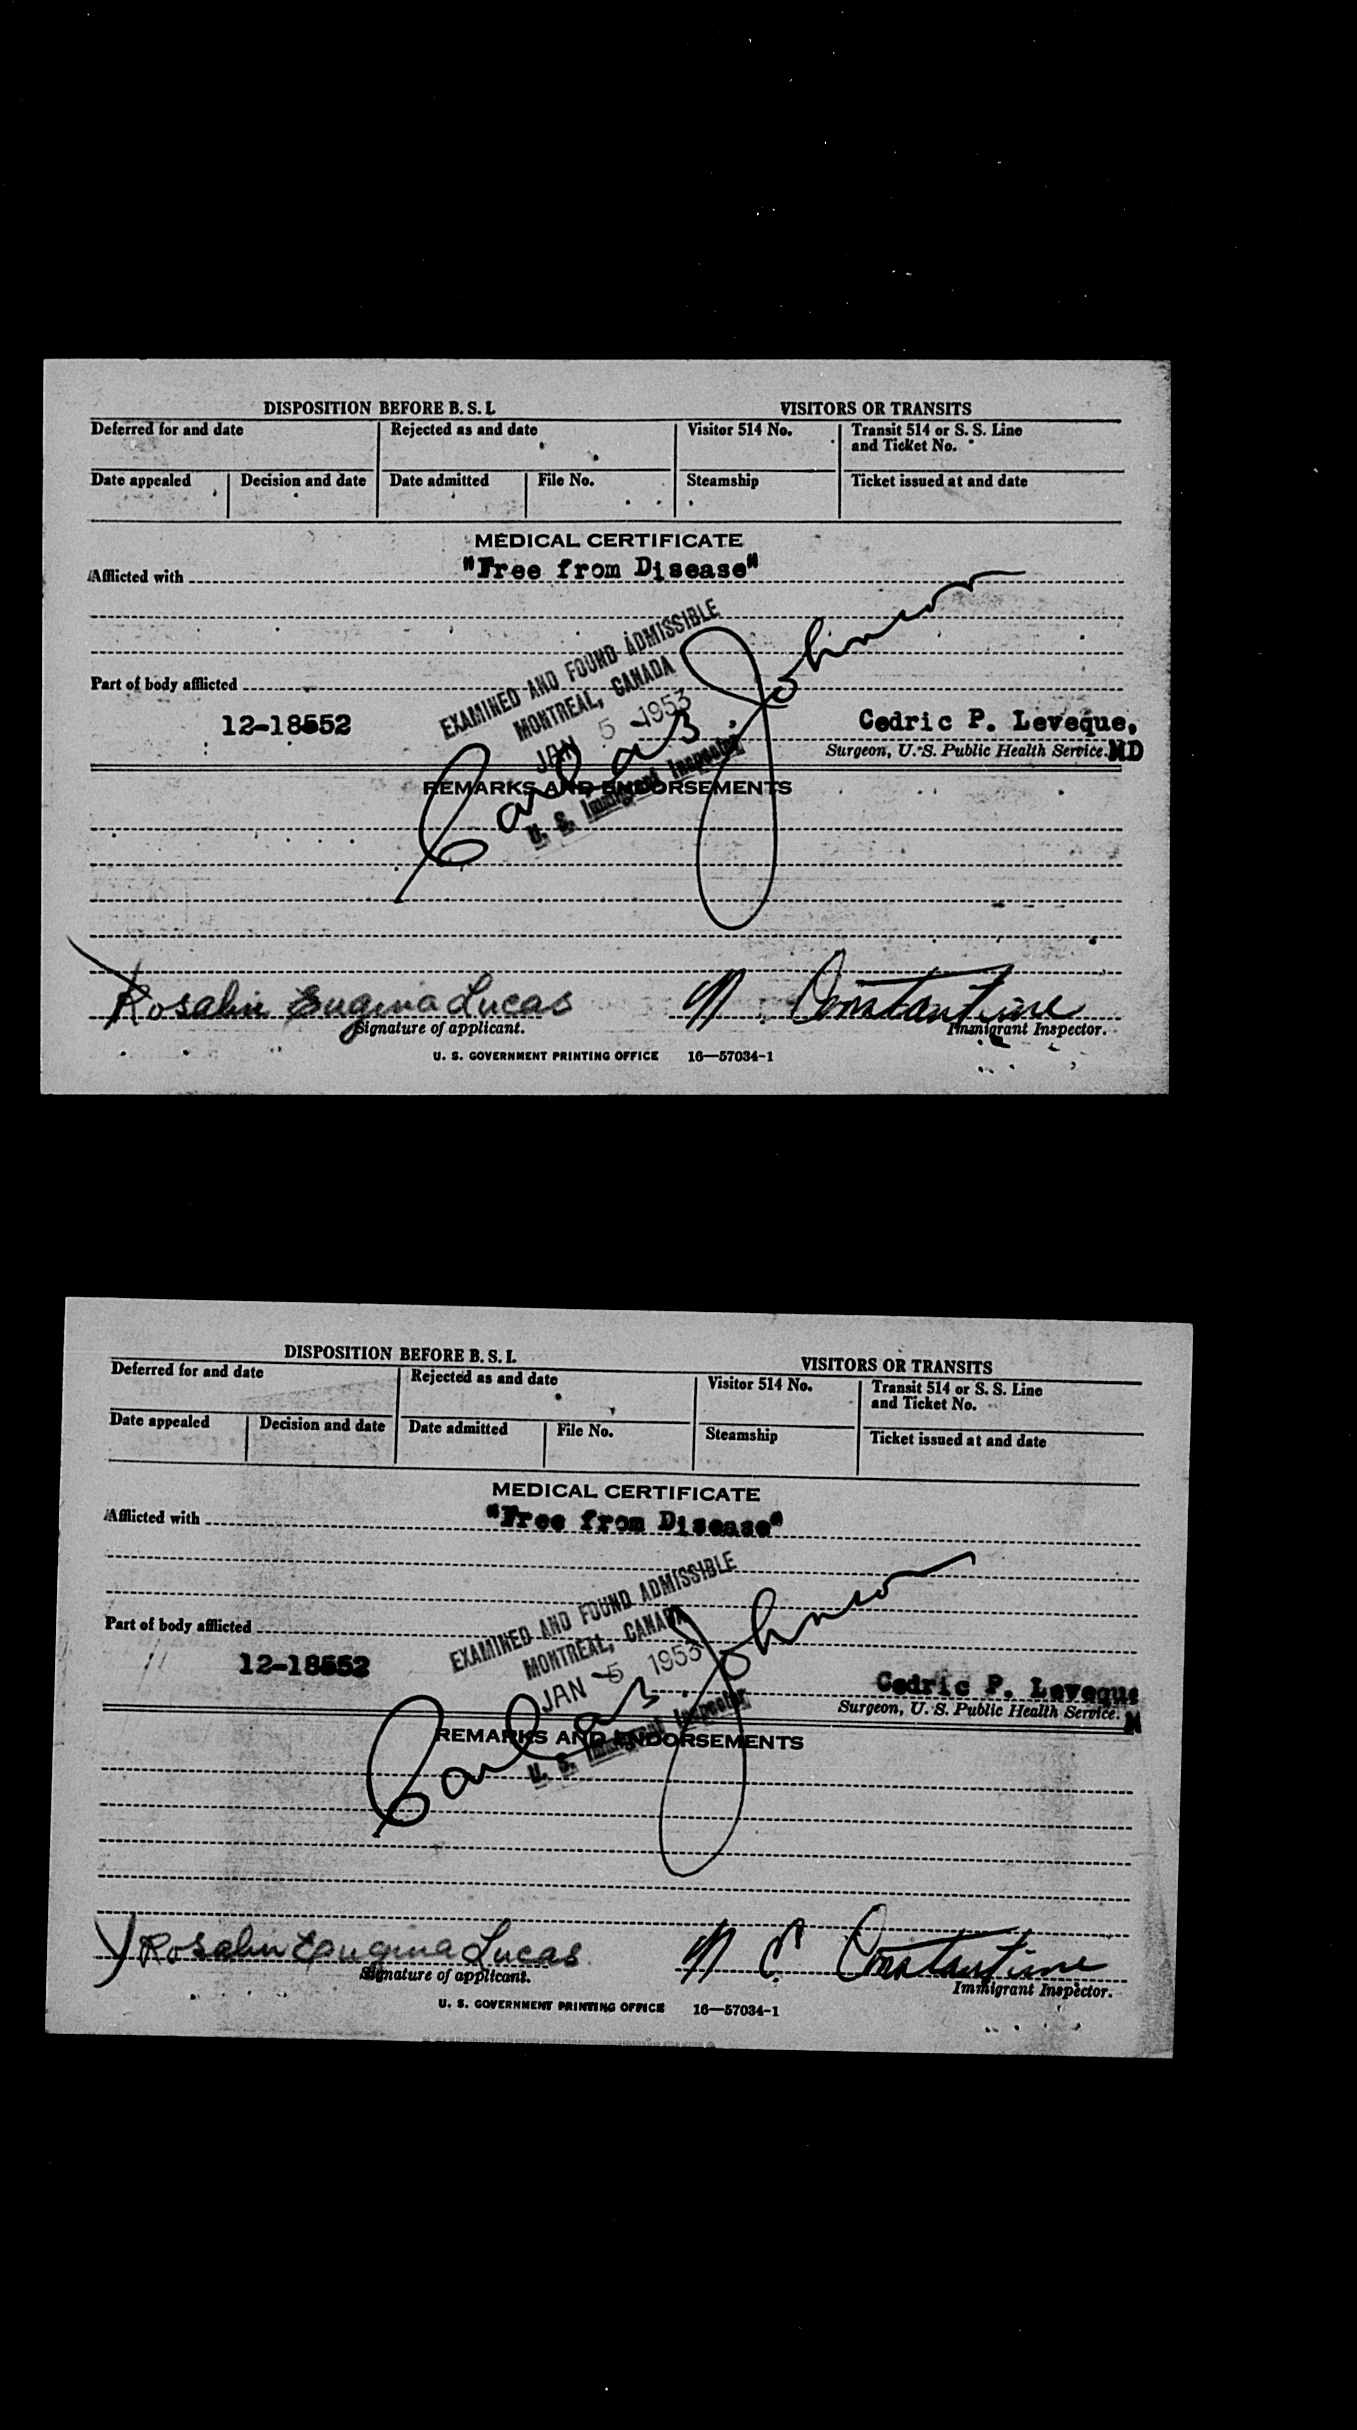 DISPOSITION BEFORE B. S. I. VISITORS OR TRANSITS
Deferred for and date Rejected as and date Visitor 514 No. Transit 514 or S. S. Line
and Ticket No.
Date appealed Decision and date Date admitted File No. Steamship Ticket issued at and date
MEDICAL CERTIFICATE
Afflicted with "Free from Disease"
EXAMINED AND FOUND ADMISSIBLE
MONTREAL, CANADA
JAN 5 - 1953
Part of body afflicted
12-18552 Cedric P. Leveque,
Surgeon, U. S. Public Health Service. MD
Johnson
U. S. Immigrant Inspector
REMARKS AND ENDORSEMENTS
Rosalin Eugina Lucas N. Constantine
Signature of applicant. Immigrant Inspector.
U. S. GOVERNMENT PRINTING OFFICE 16—57034-1
DISPOSITION BEFORE B. S. I. VISITORS OR TRANSITS
Deferred for and date Rejected as and date Visitor 514 No. Transit 514 or S. S. Line
and Ticket No.
Date appealed Decision and date Date admitted File No. Steamship Ticket issued at and date
MEDICAL CERTIFICATE
Afflicted with "Free from Disease"
EXAMINED AND FOUND ADMISSIBLE
MONTREAL, CANADA
JAN - 5 1953
Part of body afflicted
12-18552 Cedric P. Leveque
Surgeon, U. S. Public Health Service. M
Johnson
U. S. Immigrant Inspector
REMARKS AND ENDORSEMENTS
Rosalin Eaugina Lucas N C Constantine
Signature of applicant. Immigrant Inspector.
U. S. GOVERNMENT PRINTING OFFICE 16—57034-1